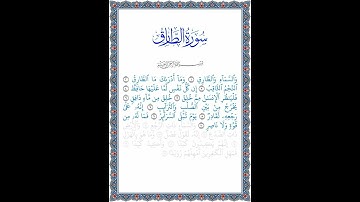 سُورَةُ الطَّارِقِ
وَالسَّمَاءِ وَالطَّارِقِ ۝ وَمَا أَدْرَىٰكَ مَا الطَّارِقُ ۝
النَّجْمُ الثَّاقِبُ ۝ إِن كُلُّ نَفْسٍ لَّمَّا عَلَيْهَا حَافِظٌ ۝
فَلْيَنظُرِ الْإِنسَٰنُ مِمَّ خُلِقَ ۝ خُلِقَ مِن مَّاءٍ دَافِقٍ ۝
يَخْرُجُ مِنْ بَيْنِ الصُّلْبِ وَالتَّرَائِبِ ۝ إِنَّهُ عَلَىٰ
رَجْعِهِ لَقَادِرٌ ۝ يَوْمَ تُبْلَى السَّرَائِرُ ۝ فَمَا لَهُ مِن
قُوَّةٍ وَلَا نَاصِرٍ ۝